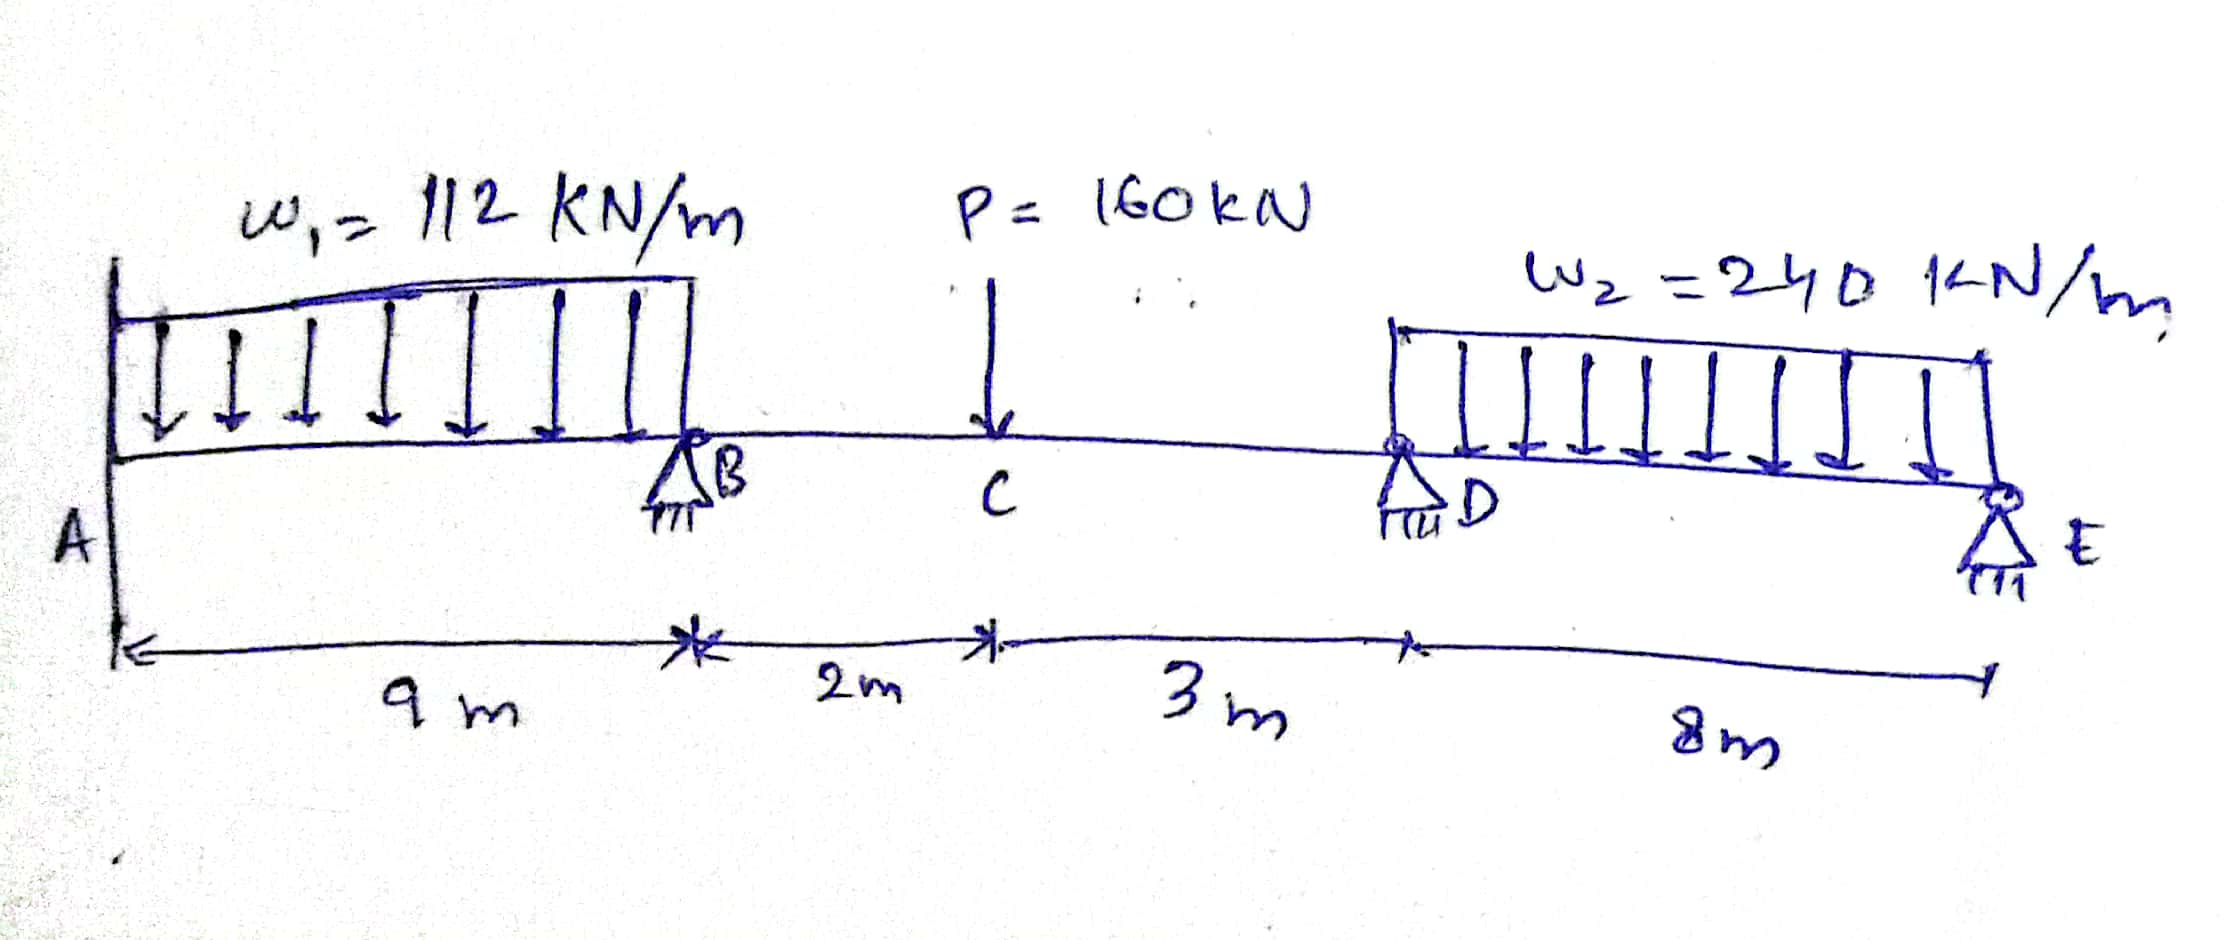 w₁ = 112 KN/m
P = 160 KN
w₂ = 240 KN/m
A
B
C
D
E
9 m
2m
3 m
8m